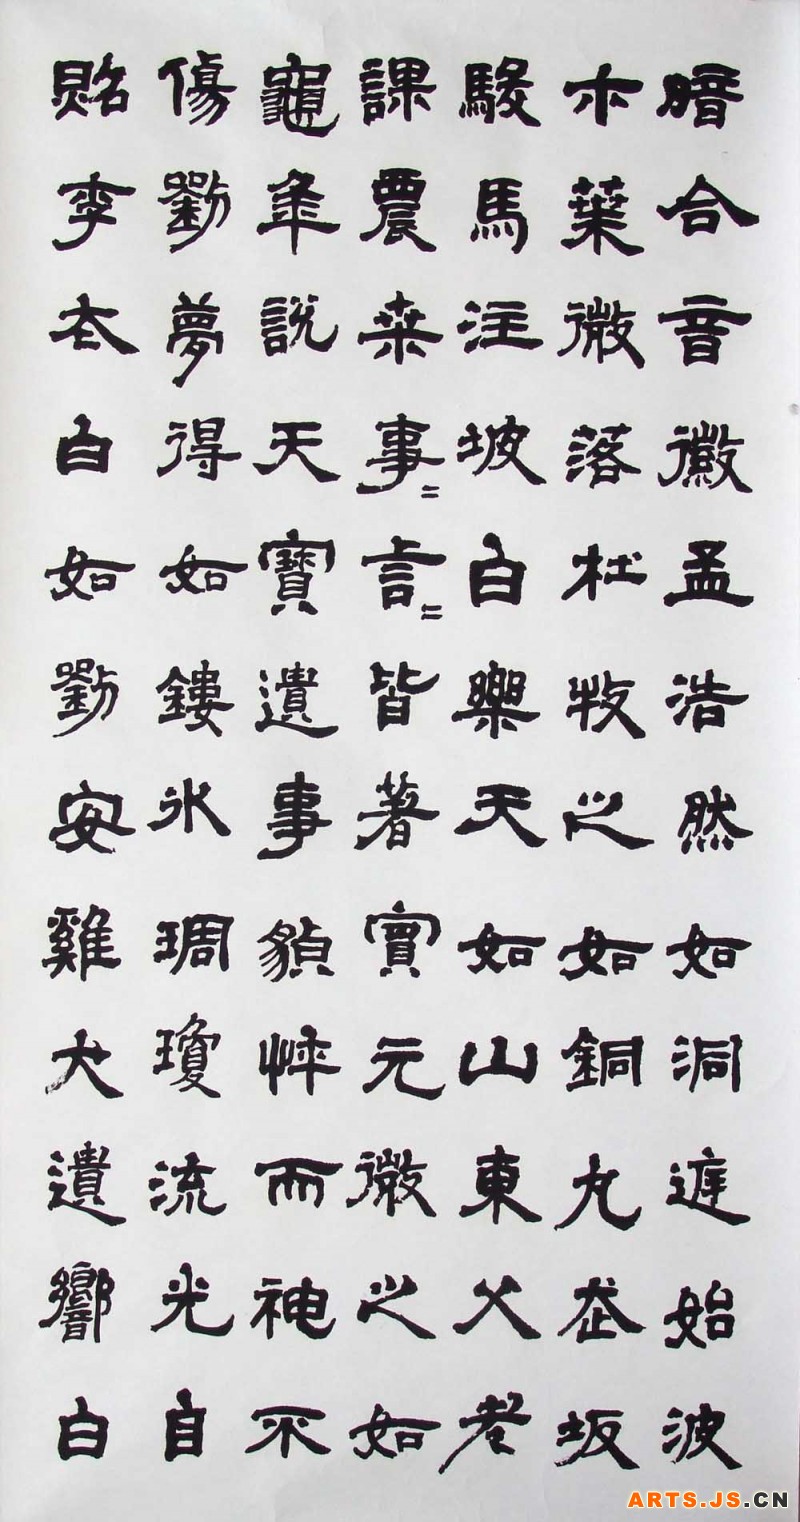 暗合音徽孟浩然如洞庭始波
木葉微落杜牧之如銅丸走坂
駿馬注坡白樂天如山東父老
課農桑事〻言〻皆著實元微之如
龜年說天寶遺事貌悴而神不
傷劉夢得如鏤冰琱瓊流光自
照李太白如劉安雞犬遺響白
ARTS.JS.CN